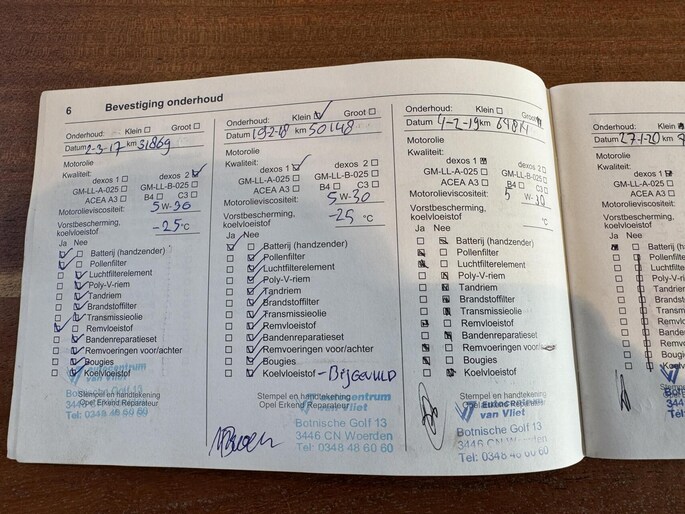 6 Bevestiging onderhoud
Onderhoud: Klein Groot
Datum 2-3-17 km 31869
Motorolie
Kwaliteit:
dexos 1 dexos 2
GM-LL-A-025 GM-LL-B-025
ACEA A3 B4 C3
Motorolieviscositeit:
5W-30
Vorstbescherming, koelvloeistof
-25°C
Ja Nee
Batterij (handzender)
Pollenfilter
Luchtfilterelement
Poly-V-riem
Tandriem
Brandstoffilter
Transmissieolie
Remvloeistof
Bandenreparatieset
Remvoeringen voor/achter
Bougies
Koelvloeistof
Stempel en handtekening
Opel Erkend Reparateur
Autocentrum
van Vliet
Botnische Golf 13
Tel: 0348 48 60 60
Onderhoud: Klein Groot
Datum 19-2-18 km 50148
Motorolie
Kwaliteit:
dexos 1 dexos 2
GM-LL-A-025 GM-LL-B-025
ACEA A3 B4 C3
Motorolieviscositeit:
5W-30
Vorstbescherming, koelvloeistof
-25 °C
Ja Nee
Batterij (handzender)
Pollenfilter
Luchtfilterelement
Poly-V-riem
Tandriem
Brandstoffilter
Transmissieolie
Remvloeistof
Bandenreparatieset
Remvoeringen voor/achter
Bougies
Koelvloeistof - BIJGEVULD
Stempel en handtekening
Opel Erkend Reparateur
Autocentrum
van Vliet
Botnische Golf 13
3446 CN Woerden
Tel: 0348 48 60 60
Onderhoud: Klein Groot
Datum 4-2-19 km
Motorolie
Kwaliteit:
dexos 1 dexos 2
GM-LL-A-025 GM-LL-B-025
ACEA A3 B4 C3
Motorolieviscositeit:
5 W-30
Vorstbescherming, koelvloeistof
°C
Ja Nee
Batterij (handzender)
Pollenfilter
Luchtfilterelement
Poly-V-riem
Tandriem
Brandstoffilter
Transmissieolie
Remvloeistof
Bandenreparatieset
Remvoeringen voor/achter
Bougies
Koelvloeistof
Stempel en handtekening
Autocentrum
van Vliet
Botnische Golf 13
3446 CN Woerden
Tel: 0348 48 60 60
Onderhoud: Klein
Datum 27-1-20 km
Motorolie
Kwaliteit:
dexos 1
GM-LL-A-025
ACEA A3
Motorolieviscositeit:
Vorstbescherming, koelvloeistof
Ja Nee
Batterij (h
Pollenfilt
Luchtfilt
Poly-V-
Tandrie
Brandst
Transm
Remvlo
Banden
Remvo
Bougie
Koelvl
Stempel e